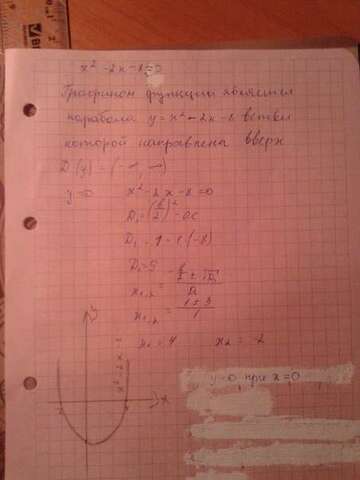 x² - 2x - 8
Графиком функции является
парабола y = x² - 2x - 8 ветви
которой направлены вверх
D(y) = (-∞, ∞)
y=0 x² - 2x - 8 = 0
D₁ = (b/2)² - ac
D₁ = 1 - 1·(-8)
D₁ = 9
x₁,₂ = (-b/2 ± √D₁)/a
x₁,₂ = (1 ± 3)/1
x₁ = 4 x₂ = -2
y=0, при x=0
y
x